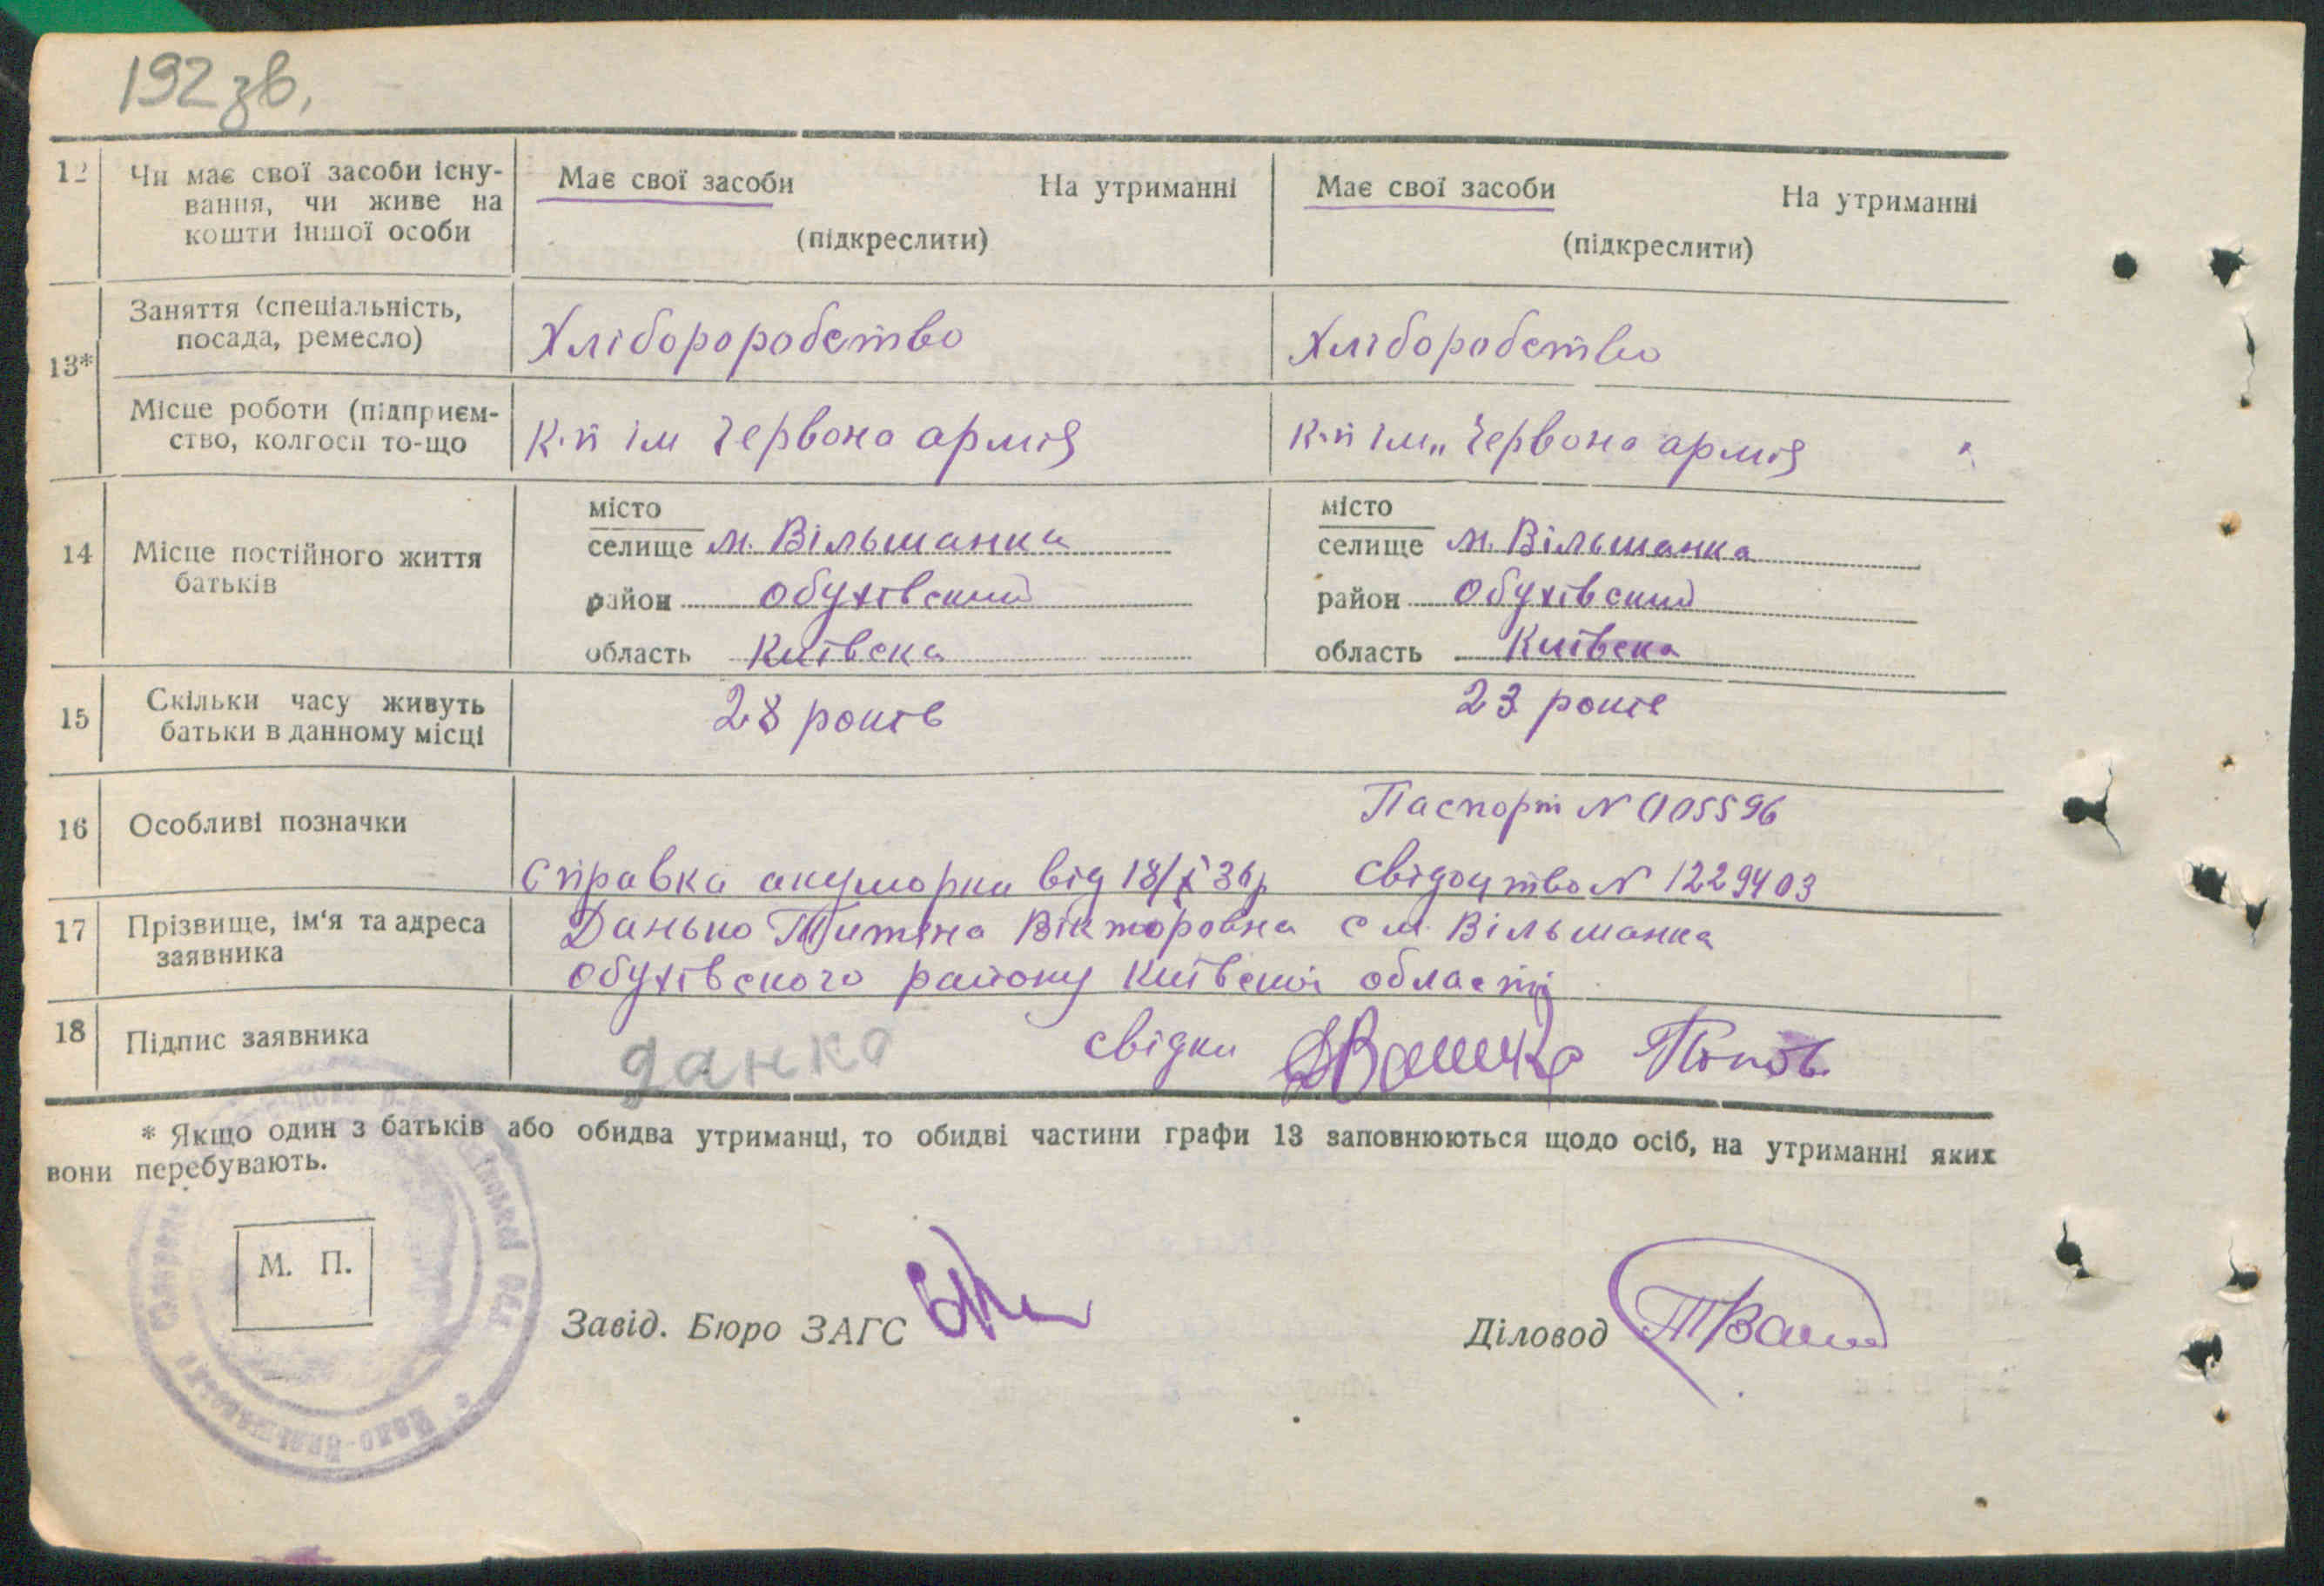 192 зв.
12 Чи має свої засоби існу-
вання, чи живе на
кошти іншої особи
Має свої засоби На утриманні
(підкреслити)
Має свої засоби На утриманні
(підкреслити)
13*
Заняття (спеціальність,
посада, ремесло)
Хлібороробство
Хліборобство
Місце роботи (підприєм-
ство, колгосп то-що
К-п ім Червона армія
К-п ім „Червона армія "
14 Місце постійного життя
батьків
місто
селище м. Вільшанка
район Обухівский
область Київска
місто
селище м. Вільшанка
район Обухівский
область Київска
15 Скільки часу живуть
батьки в данному місці
28 років
23 років
16 Особливі позначки
Паспорт №005596
Справка акушорки від 18/X 36р свідоцтво № 1229403
17 Прізвище, ім'я та адреса
заявника
Данько Титяна Вікторовна с м. Вільшанка
Обухівского району Київскої області
18 Підпис заявника
данко свідки Попов
* Якщо один з батьків або обидва утриманці, то обидві частини графи 13 заповнюються щодо осіб, на утриманні яких
вони перебувають.
М. П.
Завід. Бюро ЗАГС
Діловод